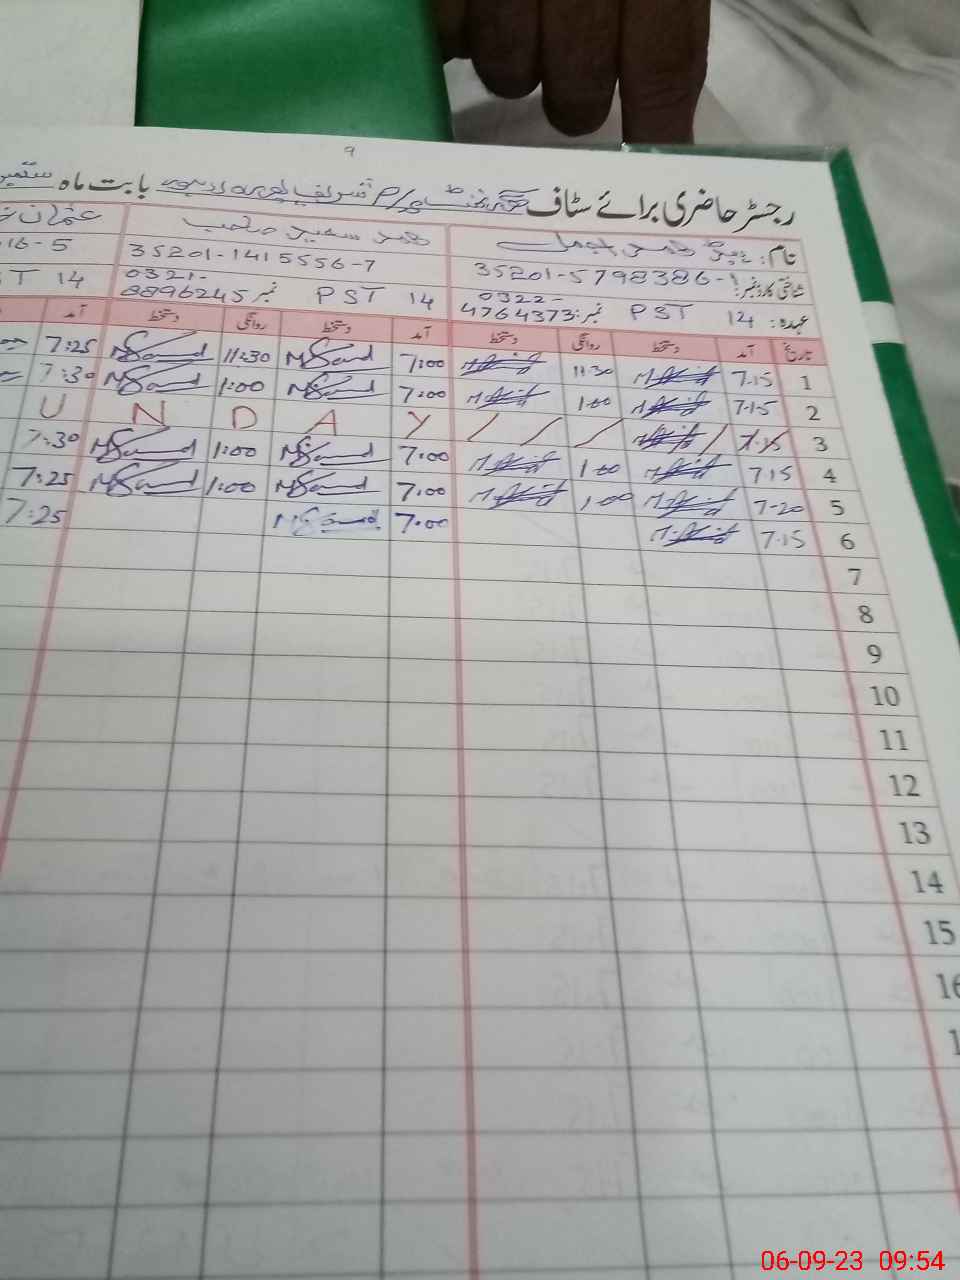 9
رجسٹر حاضری برائے سٹاف بابت ماہ ستمبر
نام: محمد سعید صاحب عثمان
شناختی کارڈ نمبر: 35201-5798386-1 35201-1415556-7 16-5
عہدہ: PST 14 نمبر: 0322-4764373 PST 14 نمبر 0321-8896245 ST 14
تاریخ آمد دستخط روانگی دستخط آمد دستخط روانگی دستخط آمد
1 7.15 11.30 7:00 MSaeed 11:30 MSaeed 7:25
2 7.15 1.00 7:00 MSaeed 1:00 MSaeed 7:30
3 7.15 / / / / Y A D N U
4 7.15 1.00 7:00 MSaeed 1:00 MSaeed 7:30
5 7-20 1,00 7:00 MSaeed 1:00 MSaeed 7:25
6 7.15 7:00 MSaeed 7:25
7
8
9
10
11
12
13
14
15
16
1
06-09-23 09:54